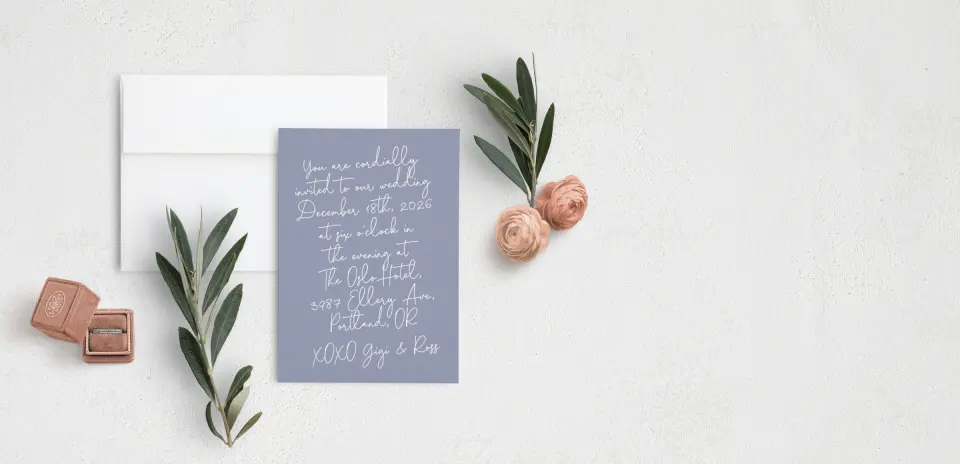 You are cordially
invited to our wedding
December 18th, 2026
at six o'clock in
the evening at
The Oslo Hotel,
3987 Ellery Ave,
Portland, OR
XOXO Gigi & Ross